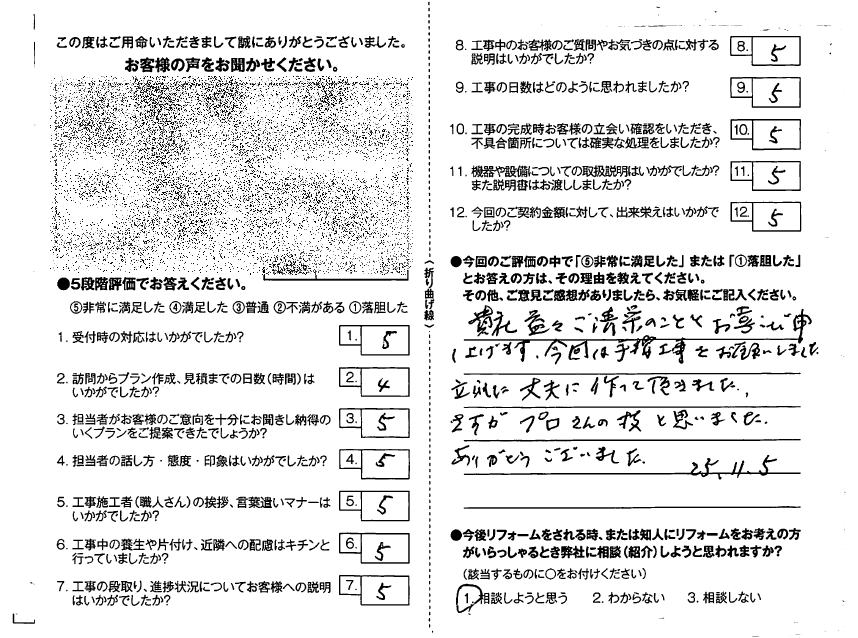 この度はご用命いただきまして誠にありがとうございました。
お客様の声をお聞かせください。
●5段階評価でお答えください。
⑤非常に満足した ④満足した ③普通 ②不満がある ①落胆した
1. 受付時の対応はいかがでしたか? 1. 5
2. 訪問からプラン作成、見積までの日数(時間)は
いかがでしたか? 2. 4
3. 担当者がお客様のご意向を十分にお聞きし納得の
いくプランをご提案できたでしょうか? 3. 5
4. 担当者の話し方・態度・印象はいかがでしたか? 4. 5
5. 工事施工者(職人さん)の挨拶、言葉遣いマナーは
いかがでしたか? 5. 5
6. 工事中の養生や片付け、近隣への配慮はキチンと
行っていましたか? 6. 5
7. 工事の段取り、進捗状況についてお客様への説明
はいかがでしたか? 7. 5
(折り曲げ線)
8. 工事中のお客様のご質問やお気づきの点に対する
説明はいかがでしたか? 8. 5
9. 工事の日数はどのように思われましたか? 9. 5
10. 工事の完成時お客様の立会い確認をいただき、
不具合箇所については確実な処理をしましたか? 10. 5
11. 機器や設備についての取扱説明はいかがでしたか?
また説明書はお渡ししましたか? 11. 5
12. 今回のご契約金額に対して、出来栄えはいかがで
したか? 12. 5
●今回のご評価の中で「⑤非常に満足した」または「①落胆した」
とお答えの方は、その理由を教えてください。
その他、ご意見ご感想がありましたら、お気軽にご記入ください。
貴社 益々ご清栄のこととお喜び申
し上げます。今回は手摺工事をお願いしました
立派に 丈夫に 作って頂きました。
さすが プロさんの技と思いました。
ありがとうございました。
25.11.5
●今後リフォームをされる時、または知人にリフォームをお考えの方
がいらっしゃるとき弊社に相談(紹介)しようと思われますか?
(該当するものに○をお付けください)
1. 相談しようと思う 2. わからない 3. 相談しない